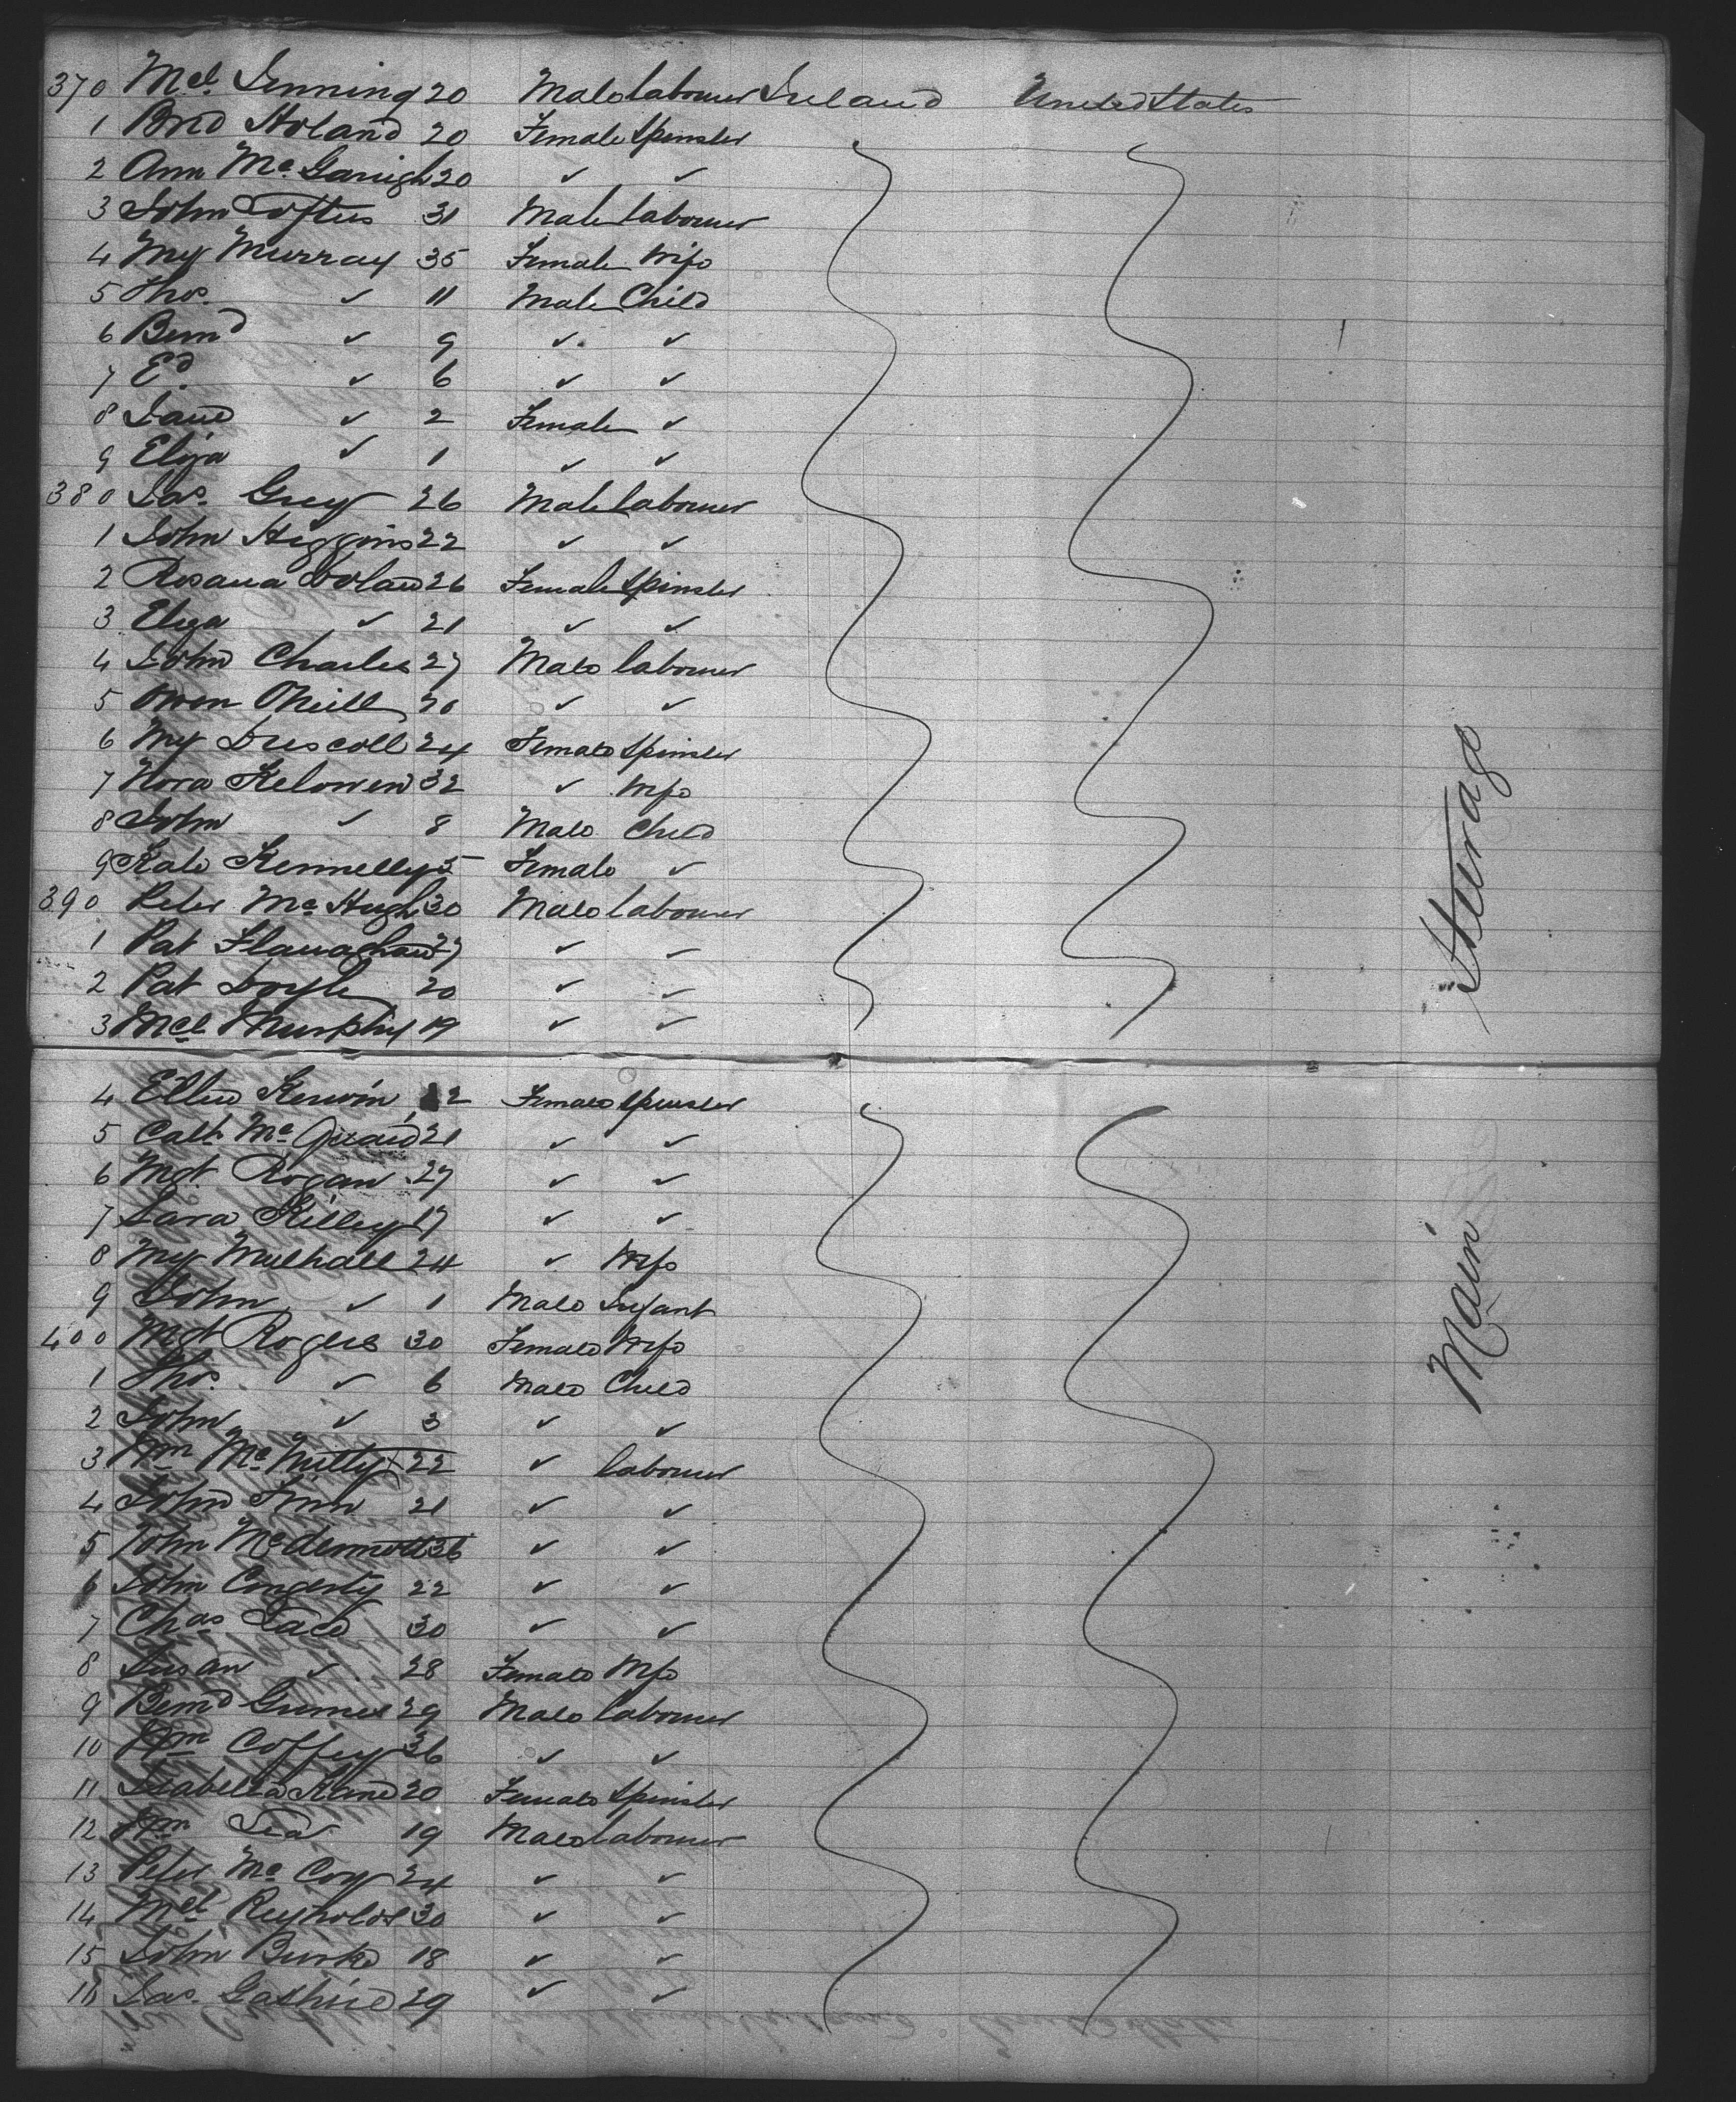 370 Mcl. Jenning 20 Male labourer Ireland United States
1 Brid Holand 20 Female Spinster
2 Ann Mc Garrigh 20 ✓ ✓
3 John Loftus 31 Male labourer
4 My Murray 35 Female Wife
5 Thos. ✓ 11 Male Child
6 Bernd ✓ 9 ✓ ✓
7 Ed. ✓ 6 ✓ ✓
8 Jane ✓ 2 Female ✓
9 Eliza ✓ 1 ✓ ✓
380 Jas. Grey 26 Male labourer
1 John Higgins 22 ✓ ✓
2 Rosana 26 Female Spinster
3 Eliza ✓ 21 ✓ ✓
4 John Charles 27 Male labourer
5 Owen ONeill 20 ✓ ✓
6 My Driscoll 24 Female Spinster
7 Nora Kelowen 32 ✓ Wife
8 John ✓ 8 Male Child
9 Kate Kennelly 5 Female ✓
390 Peter Mc Hugh 30 Male labourer
1 Pat Flanaghan 27 ✓ ✓
2 Pat Doyle 20 ✓ ✓
3 Mcl Murphy 19 ✓ ✓
Steerage
4 Ellen Kerwin 22 Female Spinster
5 Cath Mc Quaid 21 ✓ ✓
6 Mgt. Rogan 27 ✓ ✓
7 Sara Killey 17 ✓ ✓
8 My Mulhall 24 ✓ Wife
9 John ✓ 1 Male Infant
400 Mgt Rogers 30 Female Wife
1 Thos. ✓ 6 Male Child
2 John ✓ 3 ✓ ✓
3 Wm Mc Nutty 22 ✓ labourer
4 John Finn 21 ✓ ✓
5 John Mcdermott 36 ✓ ✓
6 John Congerty 22 ✓ ✓
7 Chas 30 ✓ ✓
8 Susan ✓ 28 Female Wife
9 Bernd Grimes 29 Male labourer
10 Wm Coffey 36 ✓ ✓
11 Isabella Kane 20 Female Spinster
12 Wm 19 Male labourer
13 Peter Mc Coy 24 ✓ ✓
14 Mcl Reynolds 30 ✓ ✓
15 John Burke 18 ✓ ✓
16 Jas. 29 ✓ ✓
Main